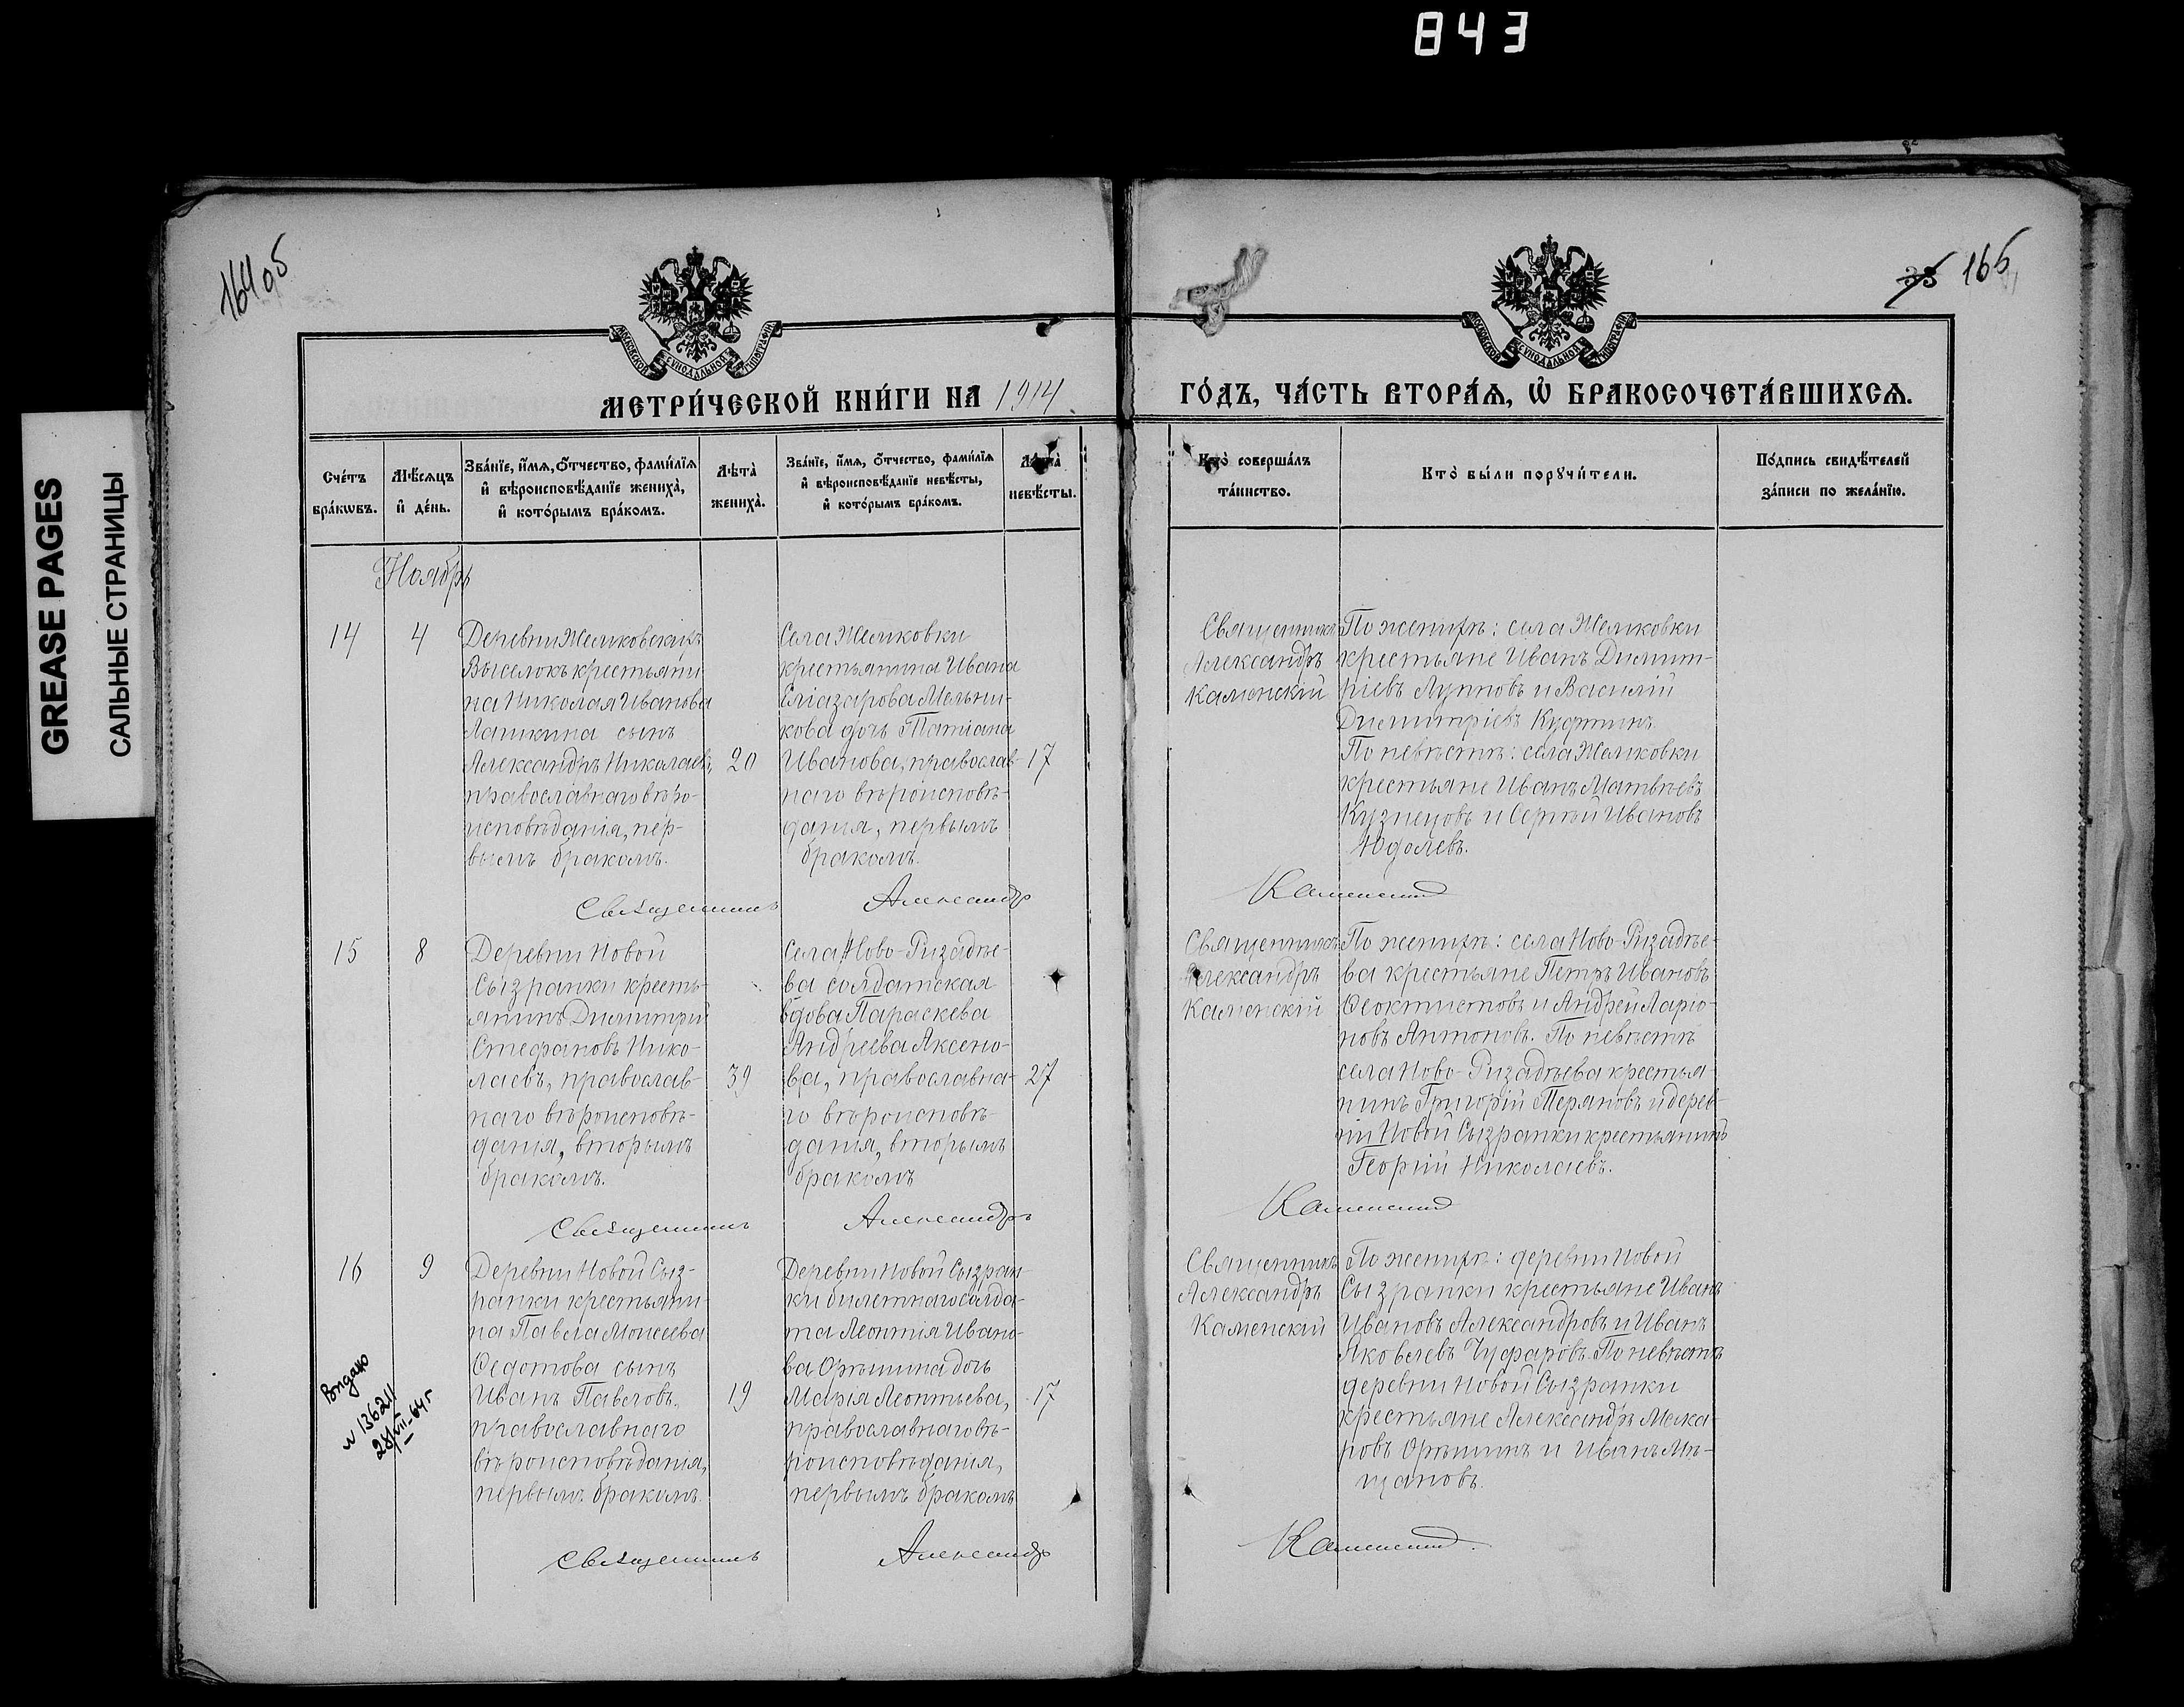 843
GREASE PAGES
САЛЬНЫЕ СТРАНИЦЫ
164 об
35 166
МОСКОВСКОЙ СѴНОДАЛЬНОЙ ТИПОГРАФІИ
МОСКОВСКОЙ СѴНОДАЛЬНОЙ ТИПОГРАФІИ
МЕТРИ́ЧЕСКОЙ КНИ́ГИ НА 1914
ГО́ДЪ, ЧА́СТЬ ВТОРА́Я, Ѡ҆ БРАКОСОЧЕТА́ВШИХСЯ.
Сче́тъ бра́кѡвъ.
Мѣ́сяцъ и҆ де́нь.
Зва́нїе, и҆́мя, ѻ҆́тчество, фами́лїя
и҆ вѣроисповѣ́данїе жениха̀,
и҆ кото́рымъ бра́комъ.
Лѣ́та жениха̀.
Зва́нїе, и҆́мя, ѻ҆́тчество, фами́лїя
и҆ вѣроисповѣ́данїе невѣ́сты,
и҆ кото́рымъ бра́комъ.
Лѣ́та невѣ́сты.
Кто̀ соверша́лъ та́инство.
Кто̀ бы́ли порꙋчи́тели.
По́дпись свидѣ́телей за́писи по жела́нїю.
Ноябрь
14
4
Деревни Жемковскихъ
Выселокъ крестьяни-
на Николая Иванова
Лашкина сынъ
Александръ Николаевъ,
православнаго вѣро-
исповѣданія, пер-
вымъ бракомъ.
20
Села Жемковки
крестьянина Ивана
Еліазарова Мельни-
кова дочь Татіана
Иванова, православ-
наго вѣроисповѣ-
данія, первымъ
бракомъ.
17
Священникъ
Александръ
Каменскій
По женихѣ: села Жемковки
крестьяне Иванъ Димит-
ріевъ Лупповъ и Василій
Димитріевъ Куфтинъ.
По невѣстѣ: села Жемковки
крестьяне Иванъ Матвѣевъ
Кузнецовъ и Сергѣй Ивановъ
Юдолевъ.
Священникъ Александръ Каменскій
15
8
Деревни Новой
Сызранки кресть-
янинъ Димитрій
Стефановъ Нико-
лаевъ, православ-
наго вѣроисповѣ-
данія, вторымъ
бракомъ.
39
Села Ново-Ризадѣе-
ва солдатская
вдова Параскева
Андреева Аксено-
ва, православна-
го вѣроисповѣ-
данія, вторымъ
бракомъ
27
Священникъ
Александръ
Каменскій
По женихѣ: села Ново-Ризадѣе-
ва крестьяне Петръ Ивановъ
Ѳеоктистовъ и Андрей Ларіо-
новъ Антоновъ. По невѣстѣ
села Ново-Ризадѣева крестья-
нинъ Григорій Теряновъ и дерев-
ни Новой Сызранки крестьянинъ
Георгій Николаевъ.
Священникъ Александръ Каменскій
16
9
Деревни Новой Сыз-
ранки крестьяни-
на Павла Моисеева
Ѳедотова сынъ
Иванъ Павловъ,
православнаго
вѣроисповѣданія,
первымъ бракомъ.
19
Деревни Новой Сызран-
ки билетнаго солда-
та Леонтія Ивано-
ва Орѣшина дочь
Марія Леонтьева,
православнаго вѣ-
роисповѣданія,
первымъ бракомъ
17
Священникъ
Александръ
Каменскій
По женихѣ: деревни Новой
Сызранки крестьяне Иванъ
Ивановъ Александровъ и Иванъ
Яковлевъ Чуфаровъ. По невѣстѣ
деревни Новой Сызранки
крестьяне Александръ Мака-
ровъ Орѣшинъ и Иванъ Мѣ-
щановъ.
Священникъ Александръ Каменскій
28/VIII-64 г